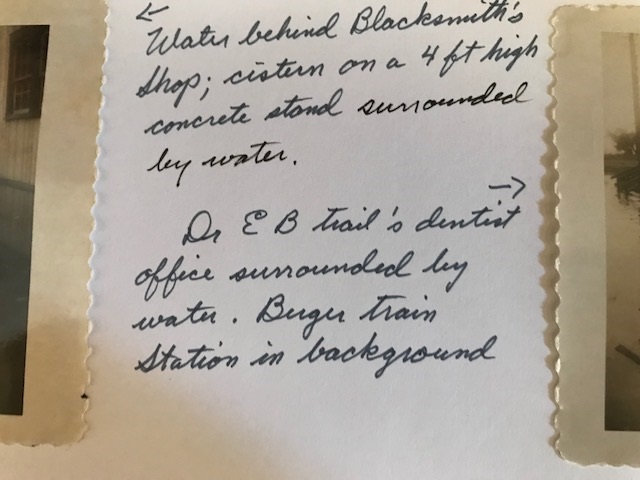 ←
Water behind Blacksmith's
shop; cistern on a 4 ft high
concrete stand surrounded
by water.
→
Dr E B trail's dentist
office surrounded by
water. Berger train
station in background